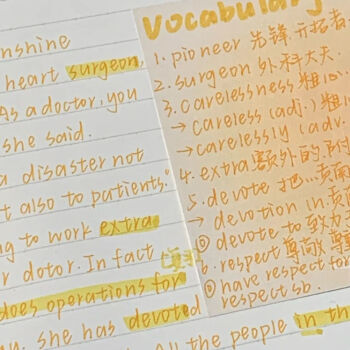 nshine
heart surgeon,
As a doctor, you
she said.
a disaster not
t also to patients."
ng to work extra
r dotor. In fact
does operations for
she has devoted
All the people in th
Vocabulary
1. pioneer 先锋，开拓者
2. surgeon 外科大夫.
3. carelessness 粗心
→ careless (adj.) 粗心
→ carelessly (adv.
4. extra 额外的，附
5. devote 把
→ devotion n.
① devote to 致力
6. respect 尊敬
② have respect for
respect sb.